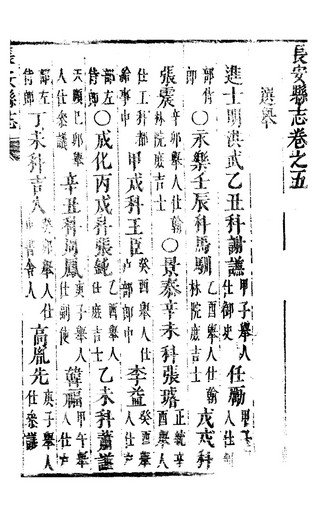 長安縣志卷之五
選舉
進士明洪武乙丑科謝譓甲子舉人仕御史任勵甲子舉人仕
部侍郎○永樂壬辰科馬馴乙酉舉人仕翰林院庶吉士戊戌科
張震辛卯舉人仕翰林院庶吉士○景泰辛未科張璿正統辛酉舉人
仕工科都給事中甲戌科王臣癸酉舉人仕户部郎中李益癸酉舉人仕户
部左侍郎○成化丙戌科張鈍乙酉舉人仕庶吉士乙未科蕭謙
天順己卯舉人仕參議辛丑科馮鳳庚子舉人仕副使韓福甲午舉人仕户
部左侍郎丁未科吉人舉人仕書舍人高胤先庚子舉人仕參議
長安縣志